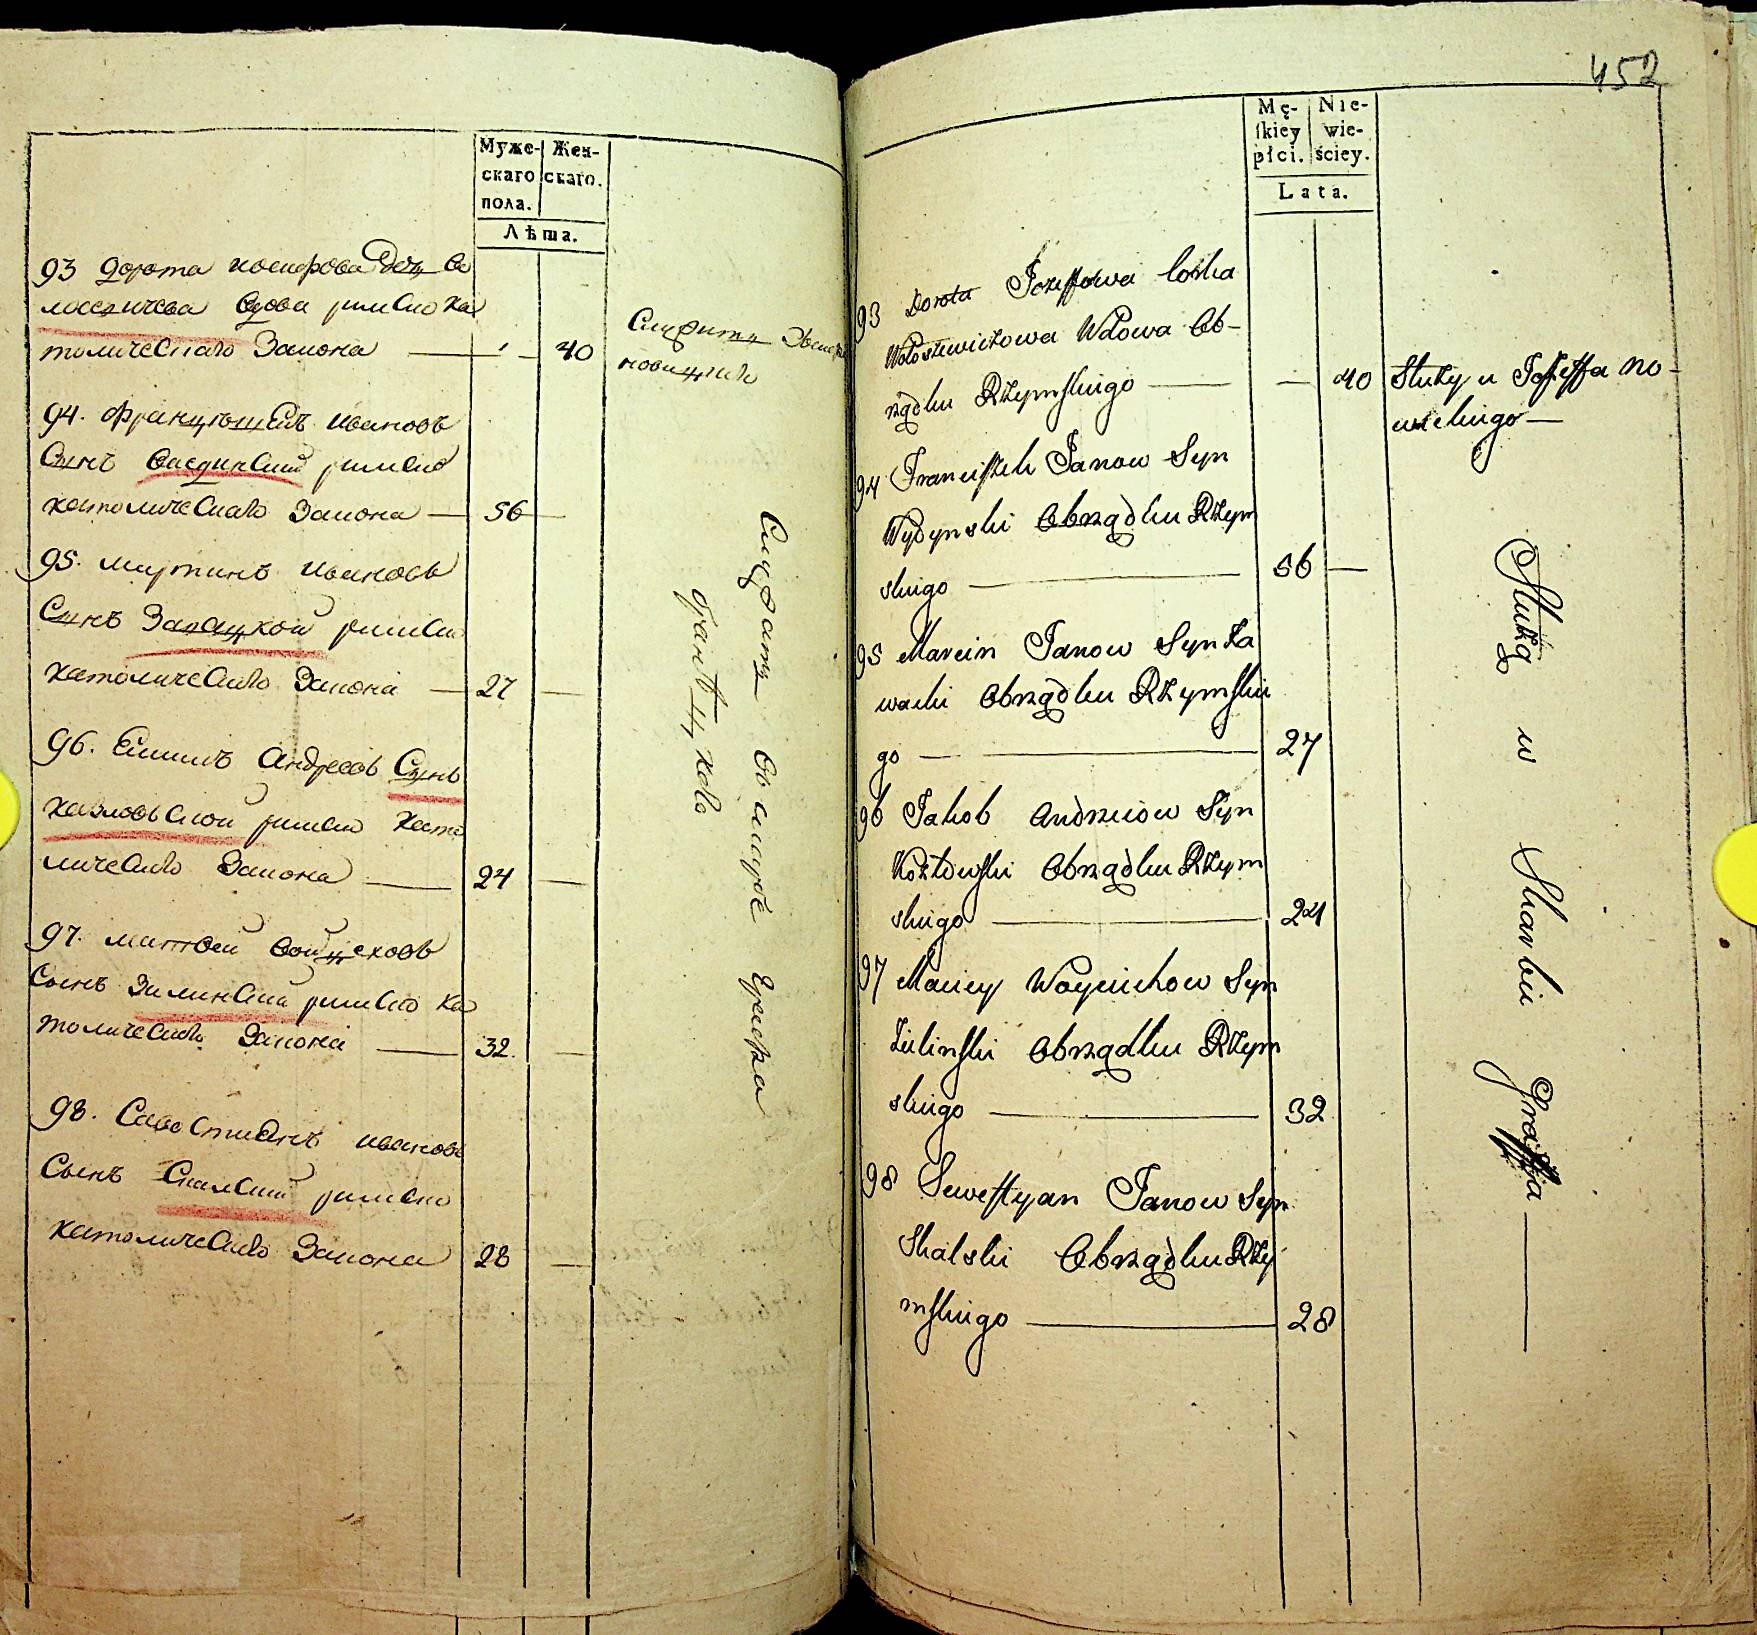 Муже- Жен-
скаго скаго.
пола.
Лѣта.
93 Дорота иосифова Доч Во
лосевичова Вдова римско ка
толическаго Закона — 40
94. Францишекъ Ивановъ
Сынъ римско
католическаго Закона — 56 —
95. Мартинъ Ивановъ
Сынъ римско
католическаго Закона — 27 —
96. Андреевъ Сынъ
казловской римско като
лическаго Закона — 24 —
97. Матвеи Войцеховъ
Сынъ Зилинский римско ка
толическаго Закона — 32. —
98. Савостиянъ Иванов
Сынъ Скалский римско
католическаго Закона 28 —
452
Mę- Nie-
skiey wie-
płci. ściey.
Lata.
93 Dorota Jozeffowa Corka
Wołosewiczowa Wdowa Ob-
rządku Rzymskiego — — 40 Służy u Jozeffa No-
wickiego —
94 Franciszek Janow Syn
Obrządku Rzym
skiego — 56 —
95 Marcin Janow Syn Za
wacki Obrządku Rzymskie
go — 27
96 Jakob Andrzeiow Syn
Kozłowski Obrządku Rzym
skiego — 24
97 Maciey Woyciechow Syn
Zielinski Obrządku Rzym
skiego — 32
98 Sewestyan Janow Syn
Skalski Obrządku Rzy
mskiego — 28
Służą w Skarbie Graffa —